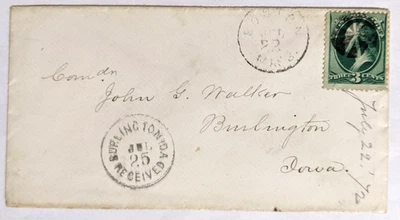 22
MASS.
THREE 3 CENTS
Comdr
John G. Walker
Burlington
Iowa.
BURLINGTON IA.
JUL
25
RECEIVED
July 22.